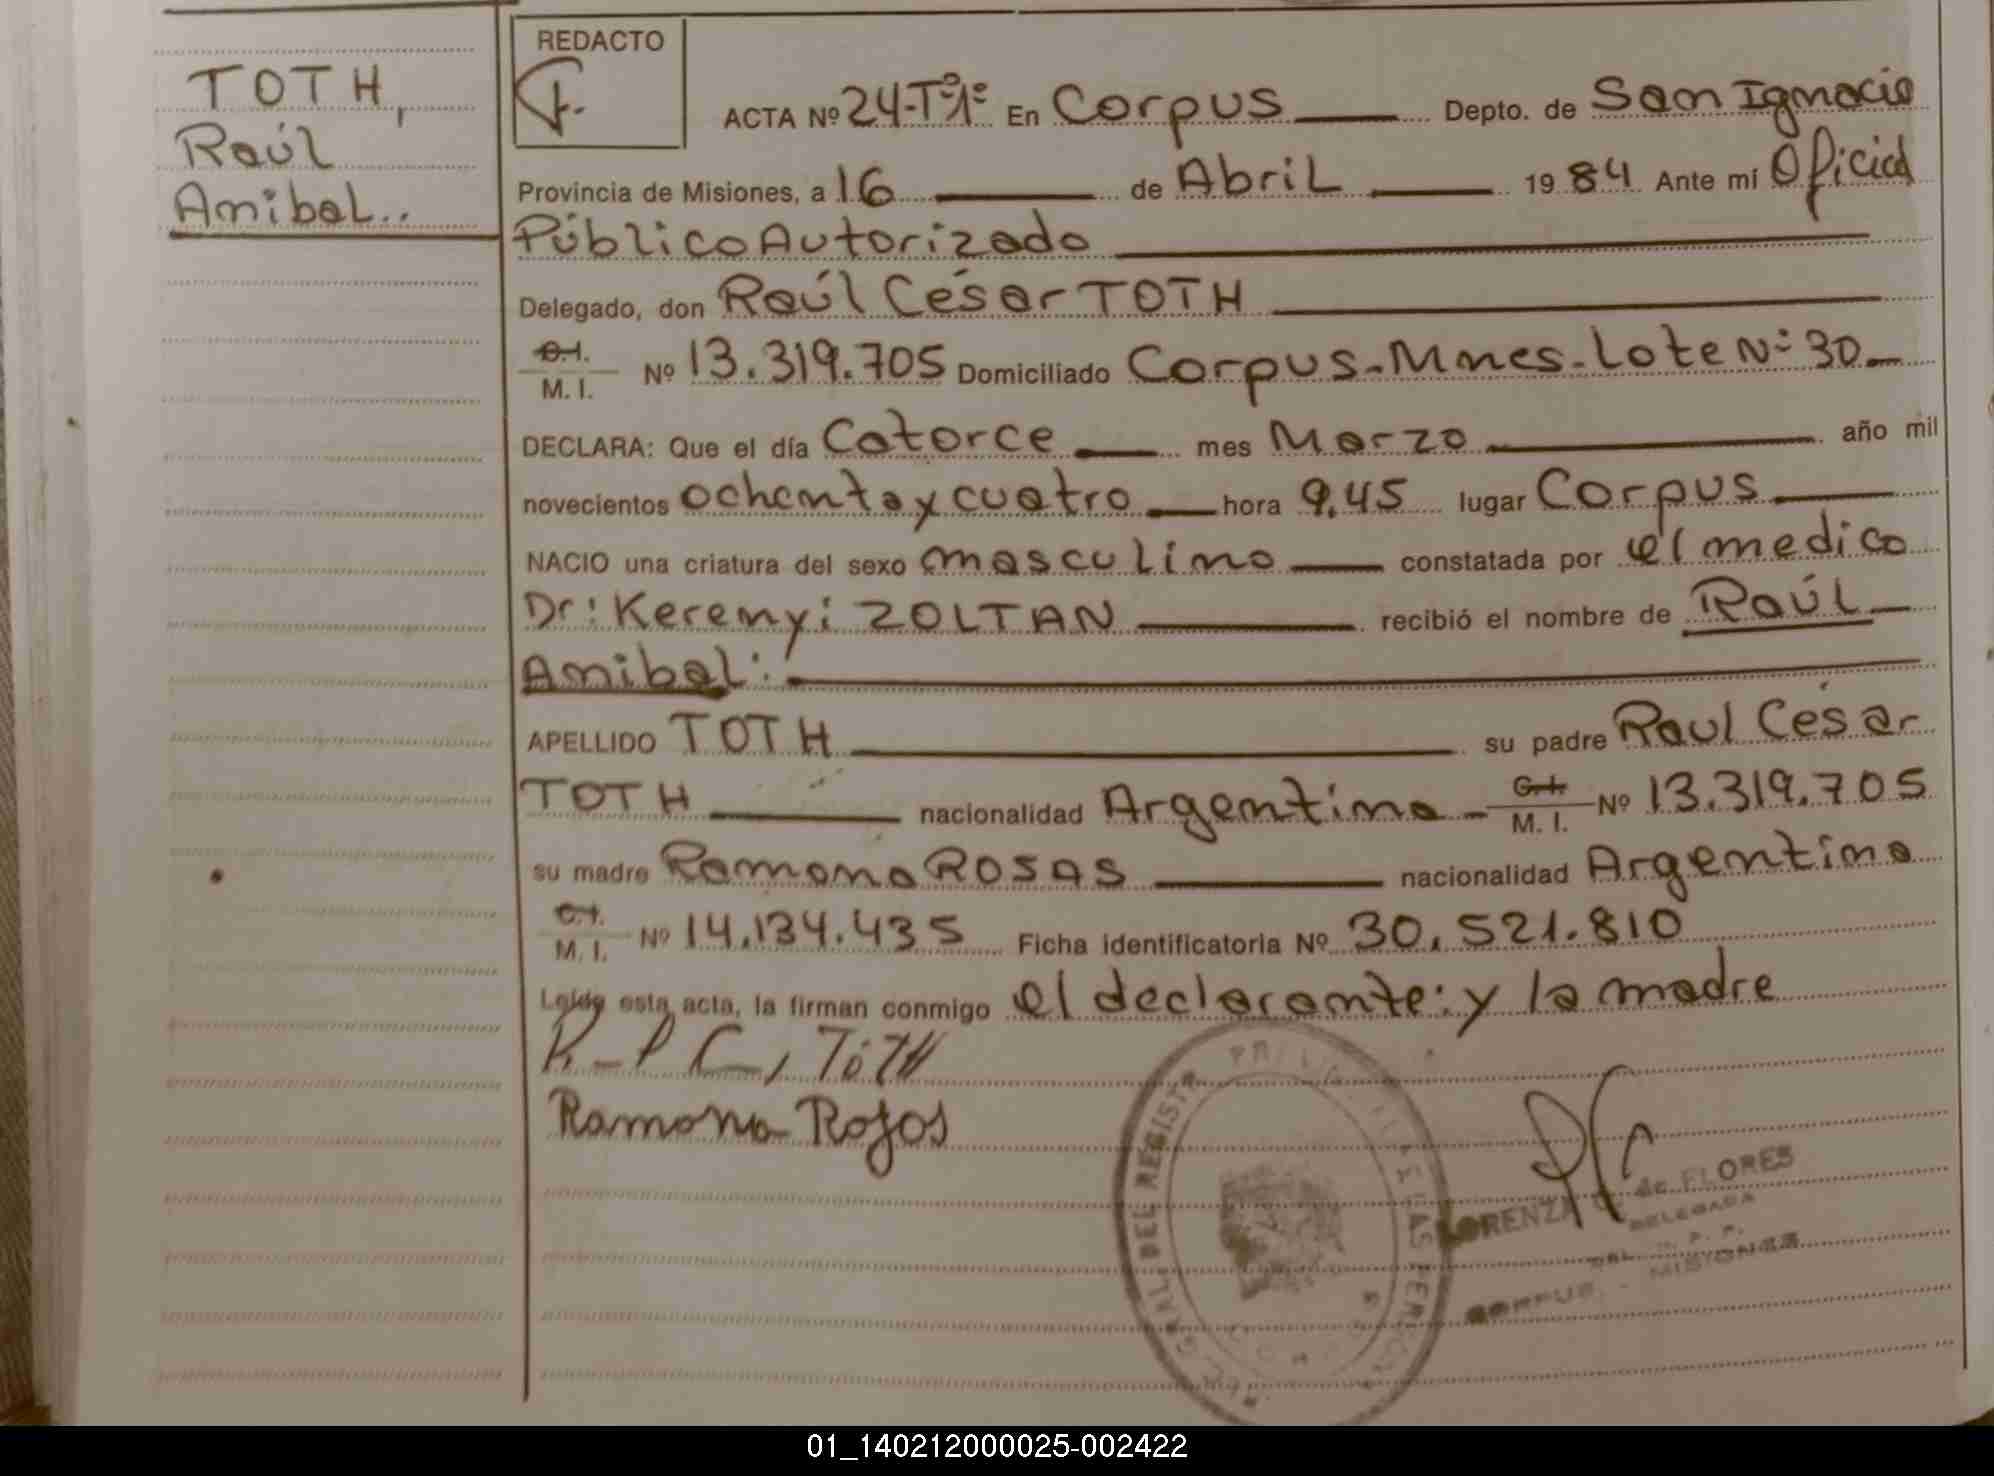 TOTH,
Raúl
Anibal..
REDACTO
ACTA Nº 24-Tº1º En Corpus Depto. de San Ignacio
Provincia de Misiones, a 16 de Abril 1984 Ante mí Oficial
Público Autorizado
Delegado, don Raúl César TOTH
C.I. M. I. Nº 13.319.705 Domiciliado Corpus-Mnes-Lote Nº 30
DECLARA: Que el día Catorce mes Marzo año mil
novecientos ochenta y cuatro hora 9,45 lugar Corpus
NACIO una criatura del sexo masculino constatada por el medico
Dr: Kerenyi ZOLTAN recibió el nombre de Raúl
Anibal:
APELLIDO TOTH su padre Raul César
TOTH nacionalidad Argentina C.I. M. I. Nº 13.319.705
su madre Ramona ROSAS nacionalidad Argentina
C.I. M. I. Nº 14.134.435 Ficha identificatoria Nº 30.521.810
Leída esta acta, la firman conmigo el declarante: y la madre
TOTH
Ramona Rojos
DEL REGISTR PROVINCIAL DE LAS PERSONAS
LORENZA de FLORES
DELEGADA
DEL R. P. P.
CORPUS - MISIONES
01_140212000025-002422